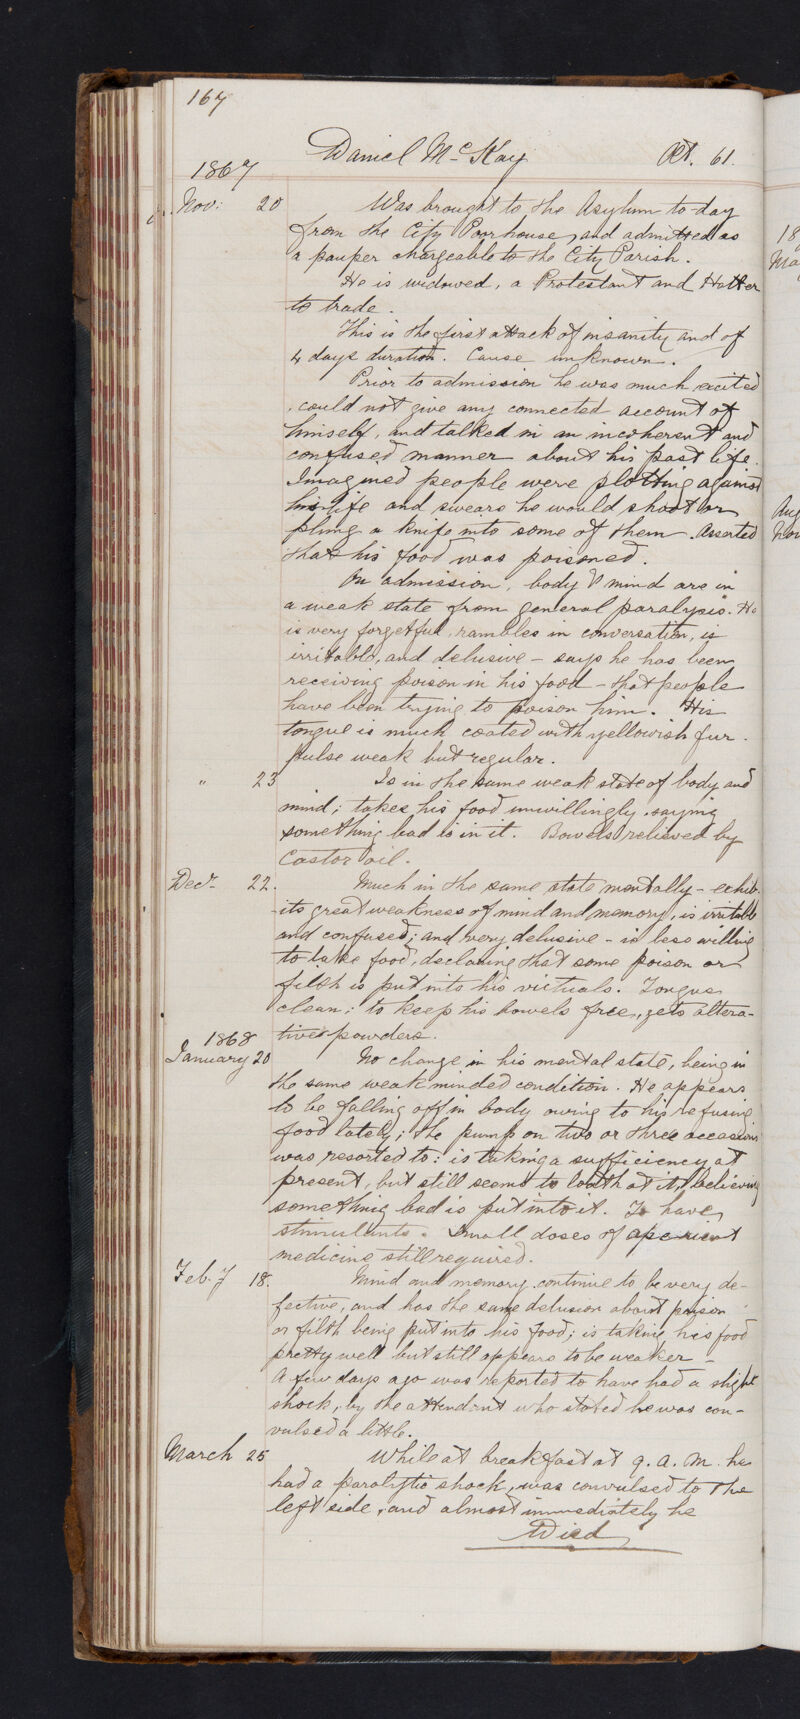 167
Daniel McKay Æt. 61.
1867
Nov: 20 Was brought to the Asylum to-day
from the City Poorhouse, and admitted as
a pauper chargeable to the City Parish.
He is widowed, a Protestant and Hatter
to trade.
This is the first attack of insanity and of
4 days duration. Cause unknown.
Prior to admission he was much excited
, could not give any connected account of
himself, and talked in an incoherent and
confused manner about his past life.
Imagined people were plotting against
his life and swears he would shoot or
plung a knife into some of them. Asserted
that his food was poisoned.
On admission, body & mind are in
a weak state from general paralysis. He
is very forgetful, rambles in conversation, is
irritable, and delusive – says he has been
receiving poison in his food – that people
have been trying to poison him. His
tongue is much coated with yellowish fur.
pulse weak but regular.
" 23 Is in the same weak state of body and
mind; takes his food unwillingly, saying
something bad is in it. Bowels relieved by
Castor oil.
Decr 22. Much in the same state mentally – exhib-
-its great weakness of mind and memory, is irritable
and confused; and very delusive – is less willing
to take food, declaring that some poison or
filth is put into his victuals. Tongue
clean; to keep his bowels free, gets altera-
tive powders.
1868
January 20 No change in his mental state, being in
the same weak minded condition. He appears
to be falling off in body owing to his refusing
food lately; the pump on two or three occasions
was resorted to: is taking a sufficiency at
present, but still seems to loath at it, believing
something bad is put into it. To have
stimulants. Small doses of aperient
medicine still required.
Feb.y 18. Mind and memory continue to be very de-
fective, and has the same delusion about poison
or filth being put into his food; is taking his food
pretty well but still appears to be weaker –
A few days ago was reported to have had a slight
shock, by the attendant who stated he was con-
vulsed a little.
March 25 While at breakfast at 9. A. M. he
had a paralytic shock, was convulsed to the
left side, and almost immediately he
Died
18
Ma
Aug
Nov